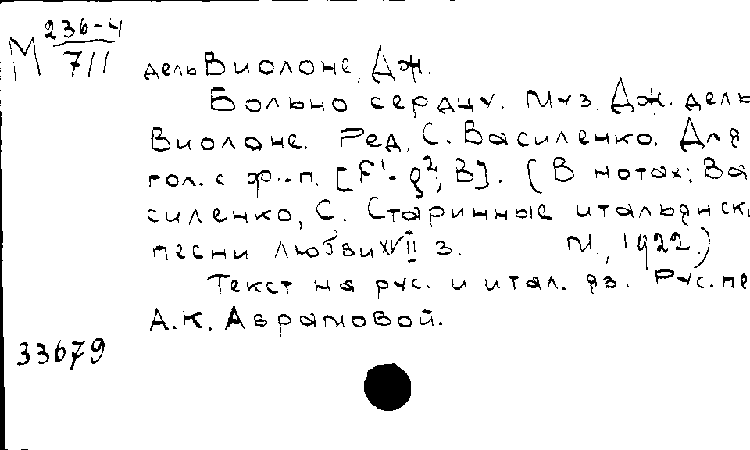 М 236-4/711
дель Виолоне, Дж.
Больно сердцу. Муз. Дж. дель
Виолоне. Ред. С. Василенко. Для
гол. с ф.-п. [f¹-g², В]. (В нотах: Ва
силенко, С. Старинные итальянск.
песни любви XVII в. М., 1922.)
Текст на рус. и итал. яз. Рус. пе
А.К. Аврамовой.
33679